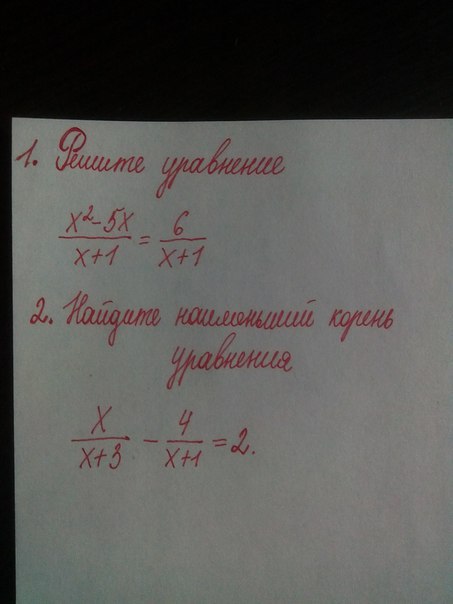 1. Решите уравнение
(x²-5x)/(x+1) = 6/(x+1)
2. Найдите наименьший корень
уравнения
x/(x+3) - 4/(x+1) = 2.